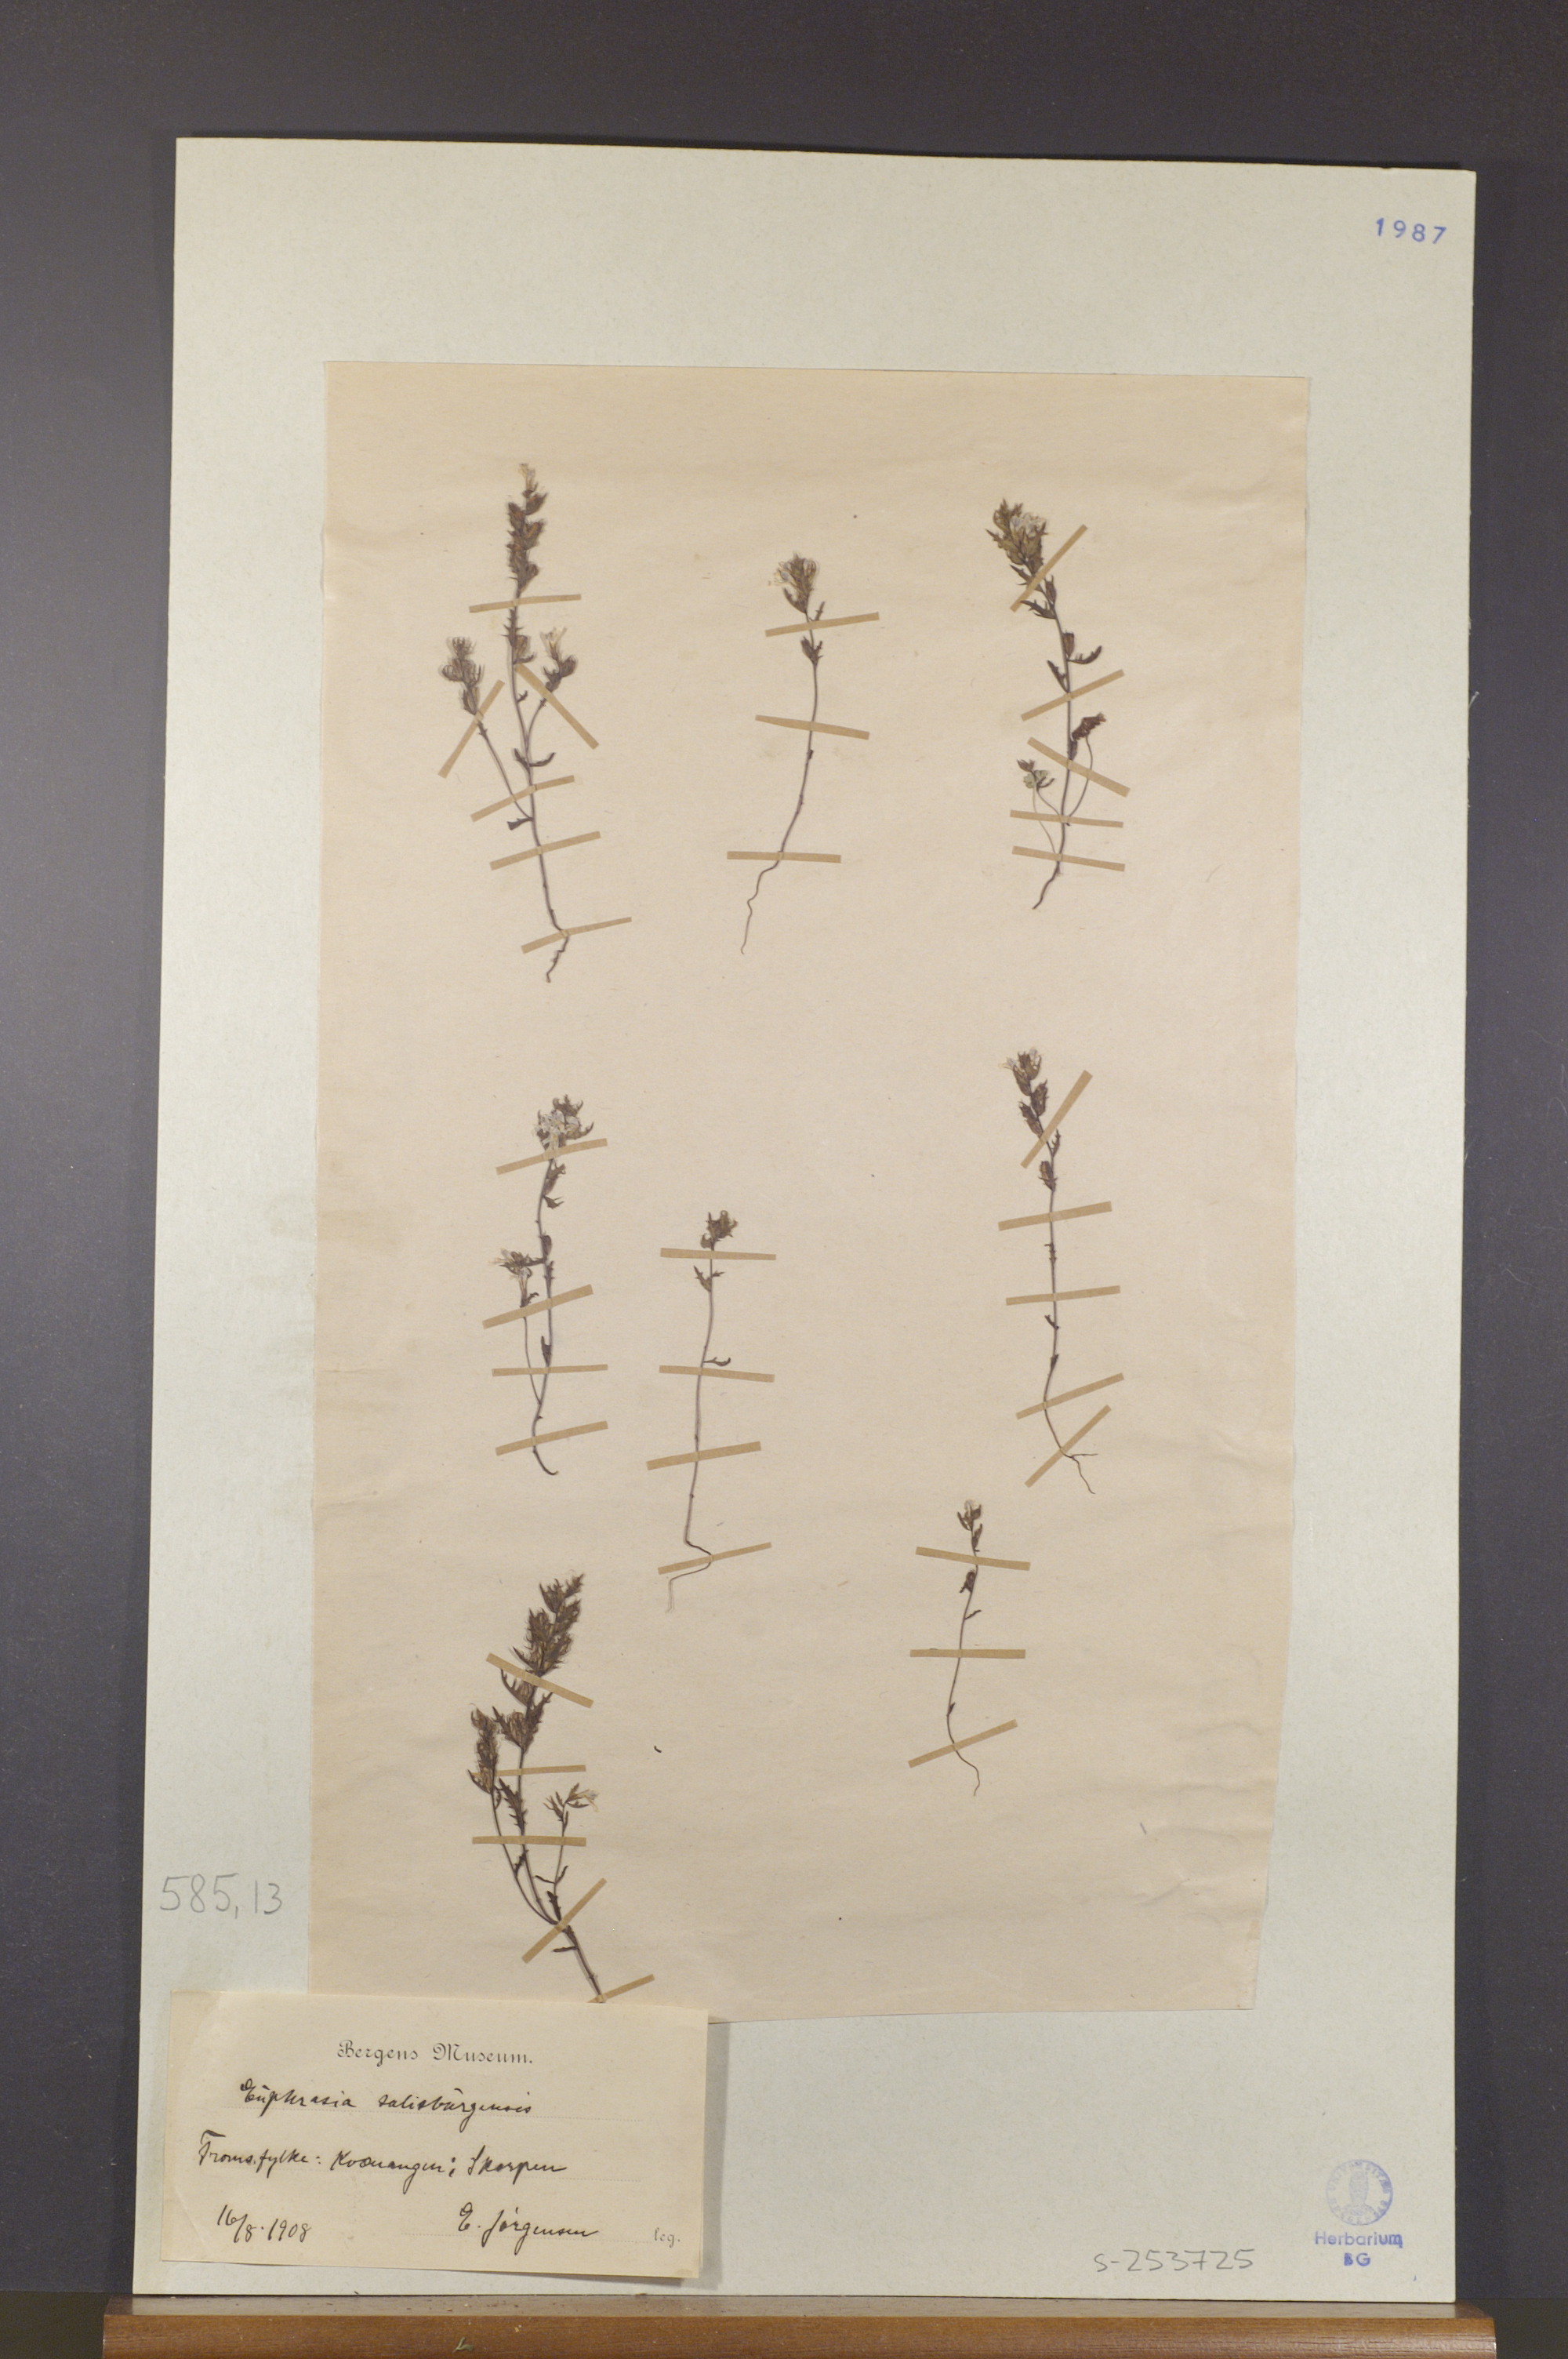 1987
585,13
Bergens Museum.
Euphrasia salisburgensis
Troms. fylke: Kvænangen; Skorpen
16/8. 1908 E. Jørgensen leg.
S-253725
Herbarium
BG